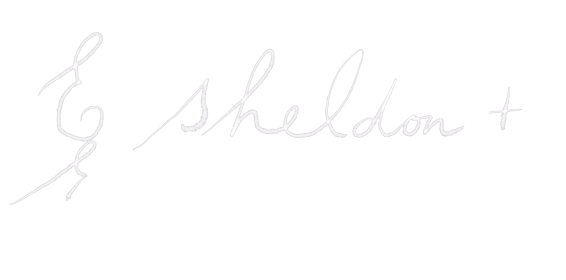 E sheldon +